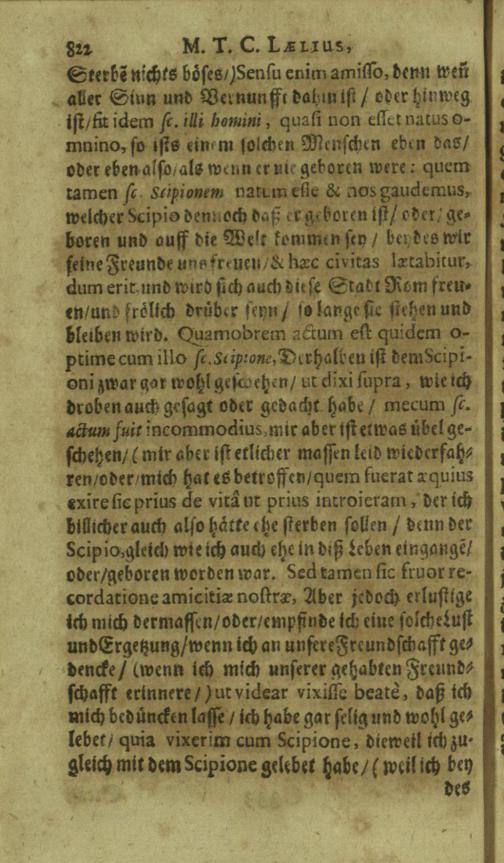 822 M. T. C. LÆLIUS,
Sterbẽ nichts böses/) Sensu enim amisso, denn weñ
aller Sinn und Vernunfft dahin ist / oder hinweg
ist/ fit idem sc. illi homini, quasi non esset natus o-
mnino, so ists einem solchen Menschen eben das/
oder eben also/ als wenn er nie geboren were: quem
tamen sc. Scipionem natum esse & nos gaudemus,
welcher Scipio dennoch daß er geboren ist/ oder/ ge-
boren und auff die Welt kommen sey / beydes wir
seine Freunde uns freuen/ & hæc civitas lætabitur,
dum erit, und wird sich auch diese Stadt Rom freu-
en/ und frölich drüber seyn / so lange sie stehen und
bleiben wird. Quamobrem actum est quidem o-
ptime cum illo sc. Scipione, Derhalben ist dem Scipi-
oni zwar gar wohl geschehen/ ut dixi supra, wie ich
droben auch gesagt oder gedacht habe / mecum sc.
actum fuit incommodius, mir aber ist etwas übel ge-
schehen/ (mir aber ist etlicher massen leid wiederfah-
ren/ oder/ mich hat es betroffen/ quem fuerat æquius
exire sic prius de vitâ ut prius introieram, der ich
billicher auch also hätte ehe sterben sollen / denn der
Scipio, gleich wie ich auch ehe in diß Leben eingangẽ/
oder/ geboren worden war. Sed tamen sic fruor re-
cordatione amicitiæ nostræ, Aber jedoch erlustige
ich mich dermassen/ oder/ empfinde ich eine solche Lust
und Ergetzung/ wenn ich an unsere Freundschafft ge-
dencke / (wenn ich mich unserer gehabten Freund-
schafft erinnere /) ut videar vixisse beatè, daß ich
mich bedüncken lasse / ich habe gar selig und wohl ge-
lebet/ quia vixerim cum Scipione, dieweil ich zu-
gleich mit dem Scipione gelebet habe/ (weil ich bey
des